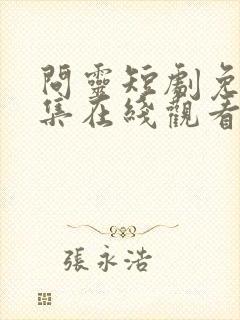 問靈短劇免
集在綫觀看
張永浩